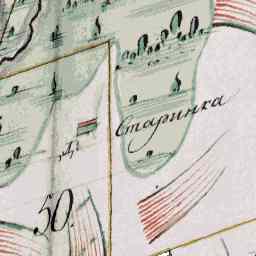 Старинка
50.